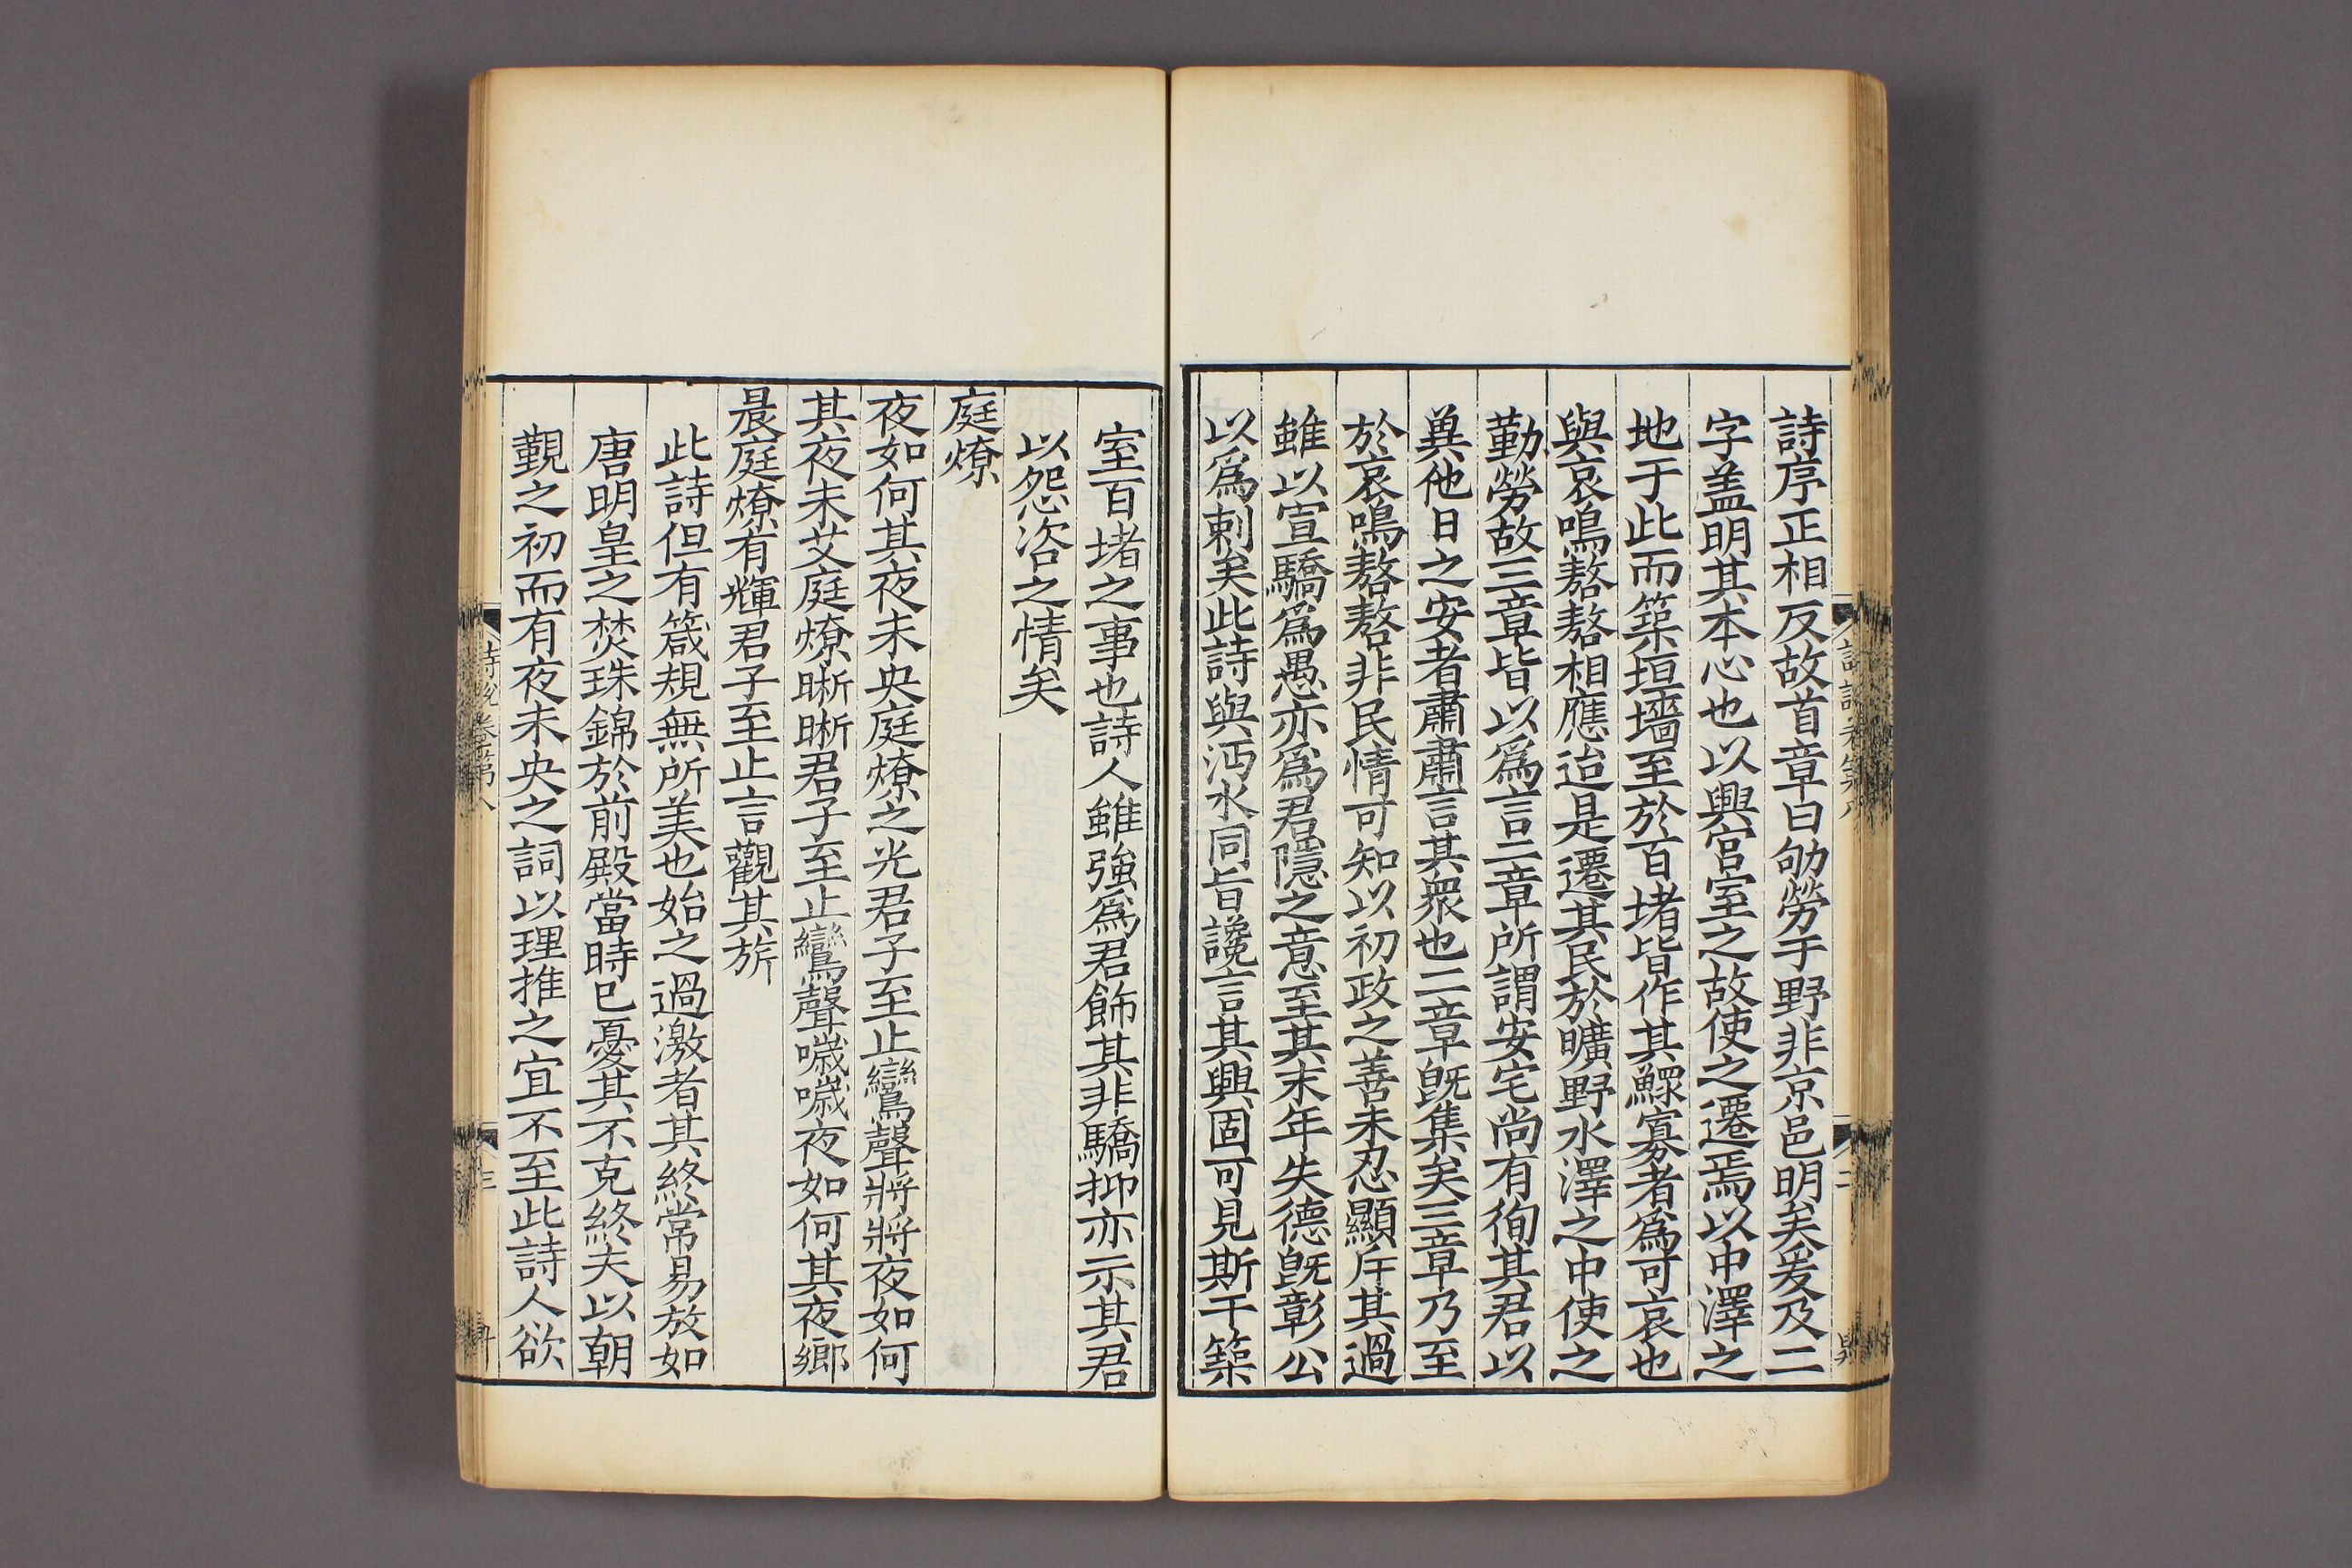 詩序正相反故首章曰劬勞于野非京邑明矣爰及二
字盖明其本心也以興宫室之故使之遷焉以中澤之
地于此而築垣墻至於百堵皆作其鰥寡者爲可哀也
與哀鳴嗸嗸相應迨是遷其民於曠野水澤之中使之
勤勞故三章皆以爲言二章所謂安宅尚有徇其君以
兾他日之安者肅肅言其衆也二章旣集矣三章乃至
於哀鳴嗸嗸非民情可知以初政之善未忍顯斥其過
雖以宣驕爲愚亦爲君隱之意至其末年失德旣彰公
以爲刺矣此詩與沔水同旨讒言其興固可見斯干築
室百堵之事也詩人雖強爲君飾其非驕抑亦示其君
以怨咨之情矣
庭燎
夜如何其夜未央庭燎之光君子至止鸞聲將將夜如何
其夜未艾庭燎晣晣君子至止鸞聲噦噦夜如何其夜鄉
晨庭燎有輝君子至止言觀其旂
此詩但有箴規無所美也始之過激者其終常易放如
唐明皇之焚珠錦於前殿當時已憂其不克終夫以朝
覲之初而有夜未央之詞以理推之宜不至此詩人欲
詩說卷第八
三